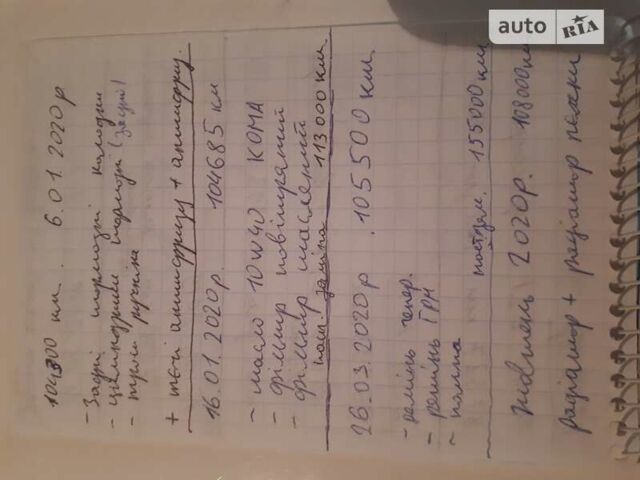 104300 км. 6.01.2020 р
- Задні тормозні колодки
- циліндрики тормозні (задні)
- троси ручніка
+ течі антифризу + антифриз.
16.01.2020р. 104685 км
- масло 10w40 КОМА
- фільтр повітряний
- фільтр масляний
наст заміна 113000 км.
26.03.2020р. 105500 км
- ремінь генер.
- ремінь ГРМ
- помпа
наступн. 155000 км
жовтень 2020р. 108000 км
радіатор + радіатор печки
auto RIA